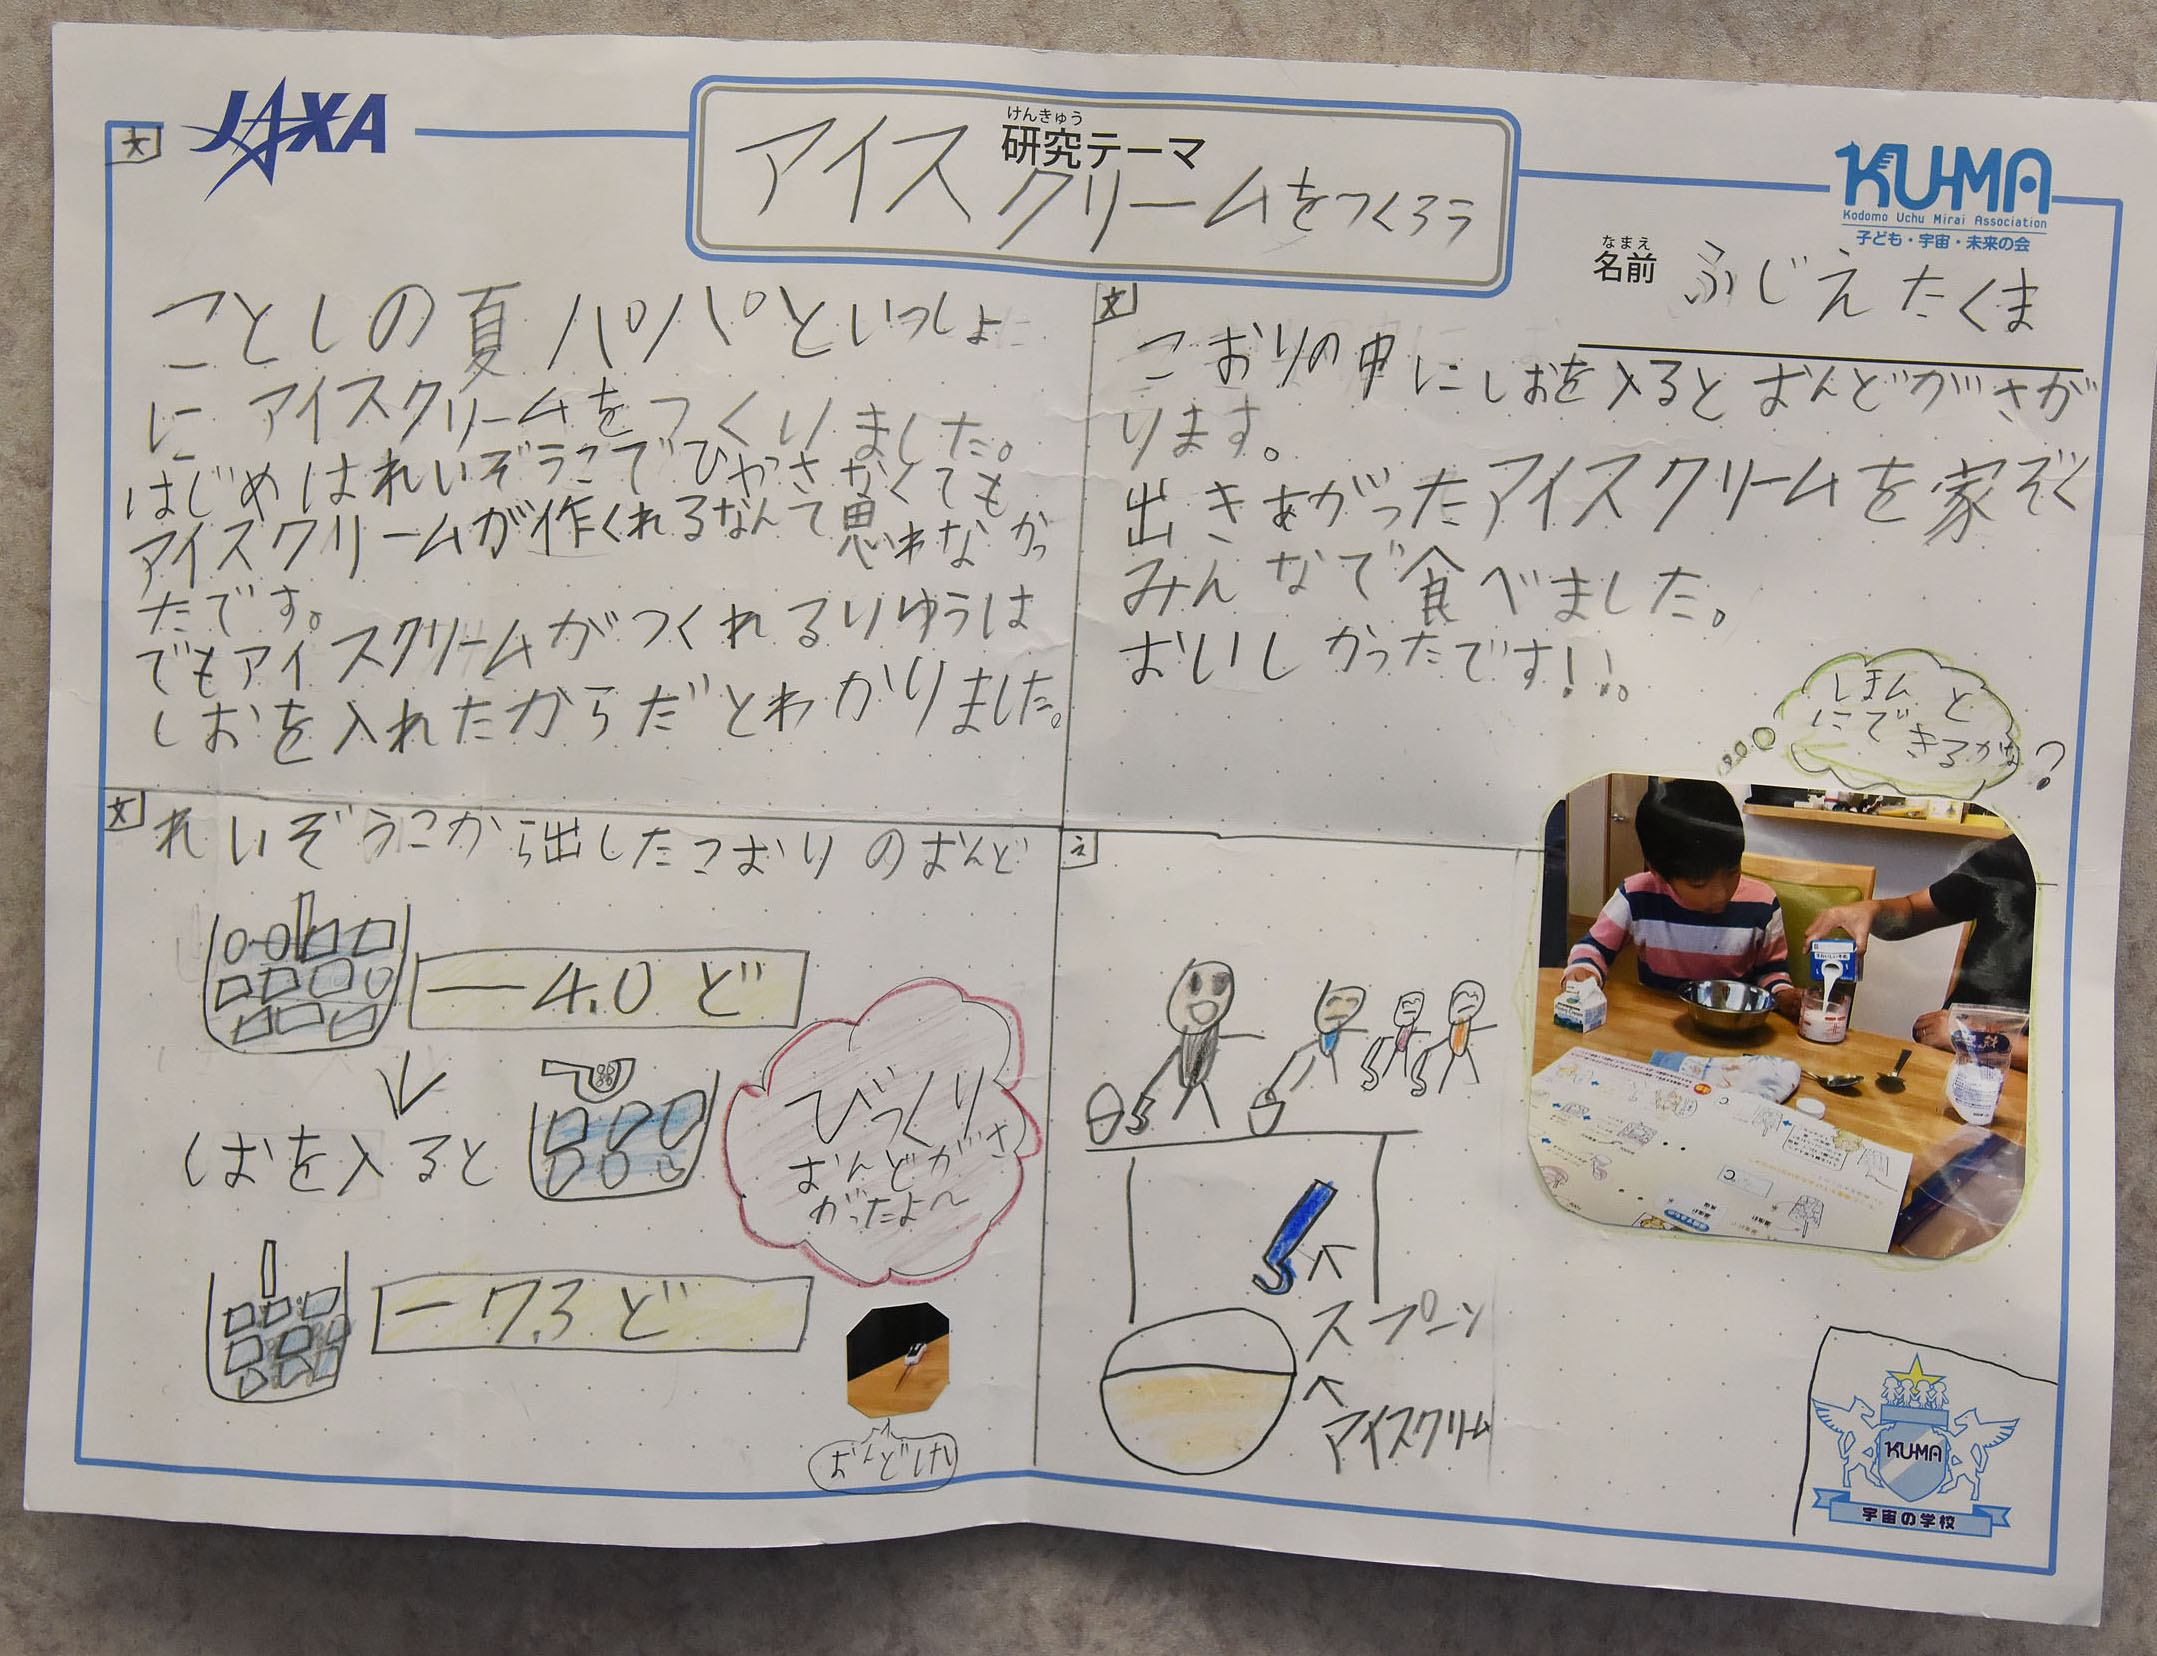 JAXA
けんきゅう
研究テーマ
アイスクリームをつくろう
KU-MA
Kodomo Uchu Mirai Association
子ども・宇宙・未来の会
なまえ
名前 ふじえたくま
文
ことしの夏パパといっしょ
にアイスクリームをつくりました。
はじめはれいぞうこでひやさなくても
アイスクリームが作くれるなんて思わなかっ
たです。
でもアイスクリームがつくれるりゆうは
しおを入れたからだとわかりました。
文
こおりの中にしおを入るとおんどがさが
ります。
出きあがったアイスクリームを家ぞく
みんなで食べました。
おいしかったです!!。
しほんと
にできるかな?
文
れいぞうこから出したこおりのおんど
-4.0ど
↓
しおを入ると
-7.3ど
びっくり
おんどがさ
がったよ〜
おんどけい
え
スプーン
アイスクリーム
KU-MA
宇宙の学校